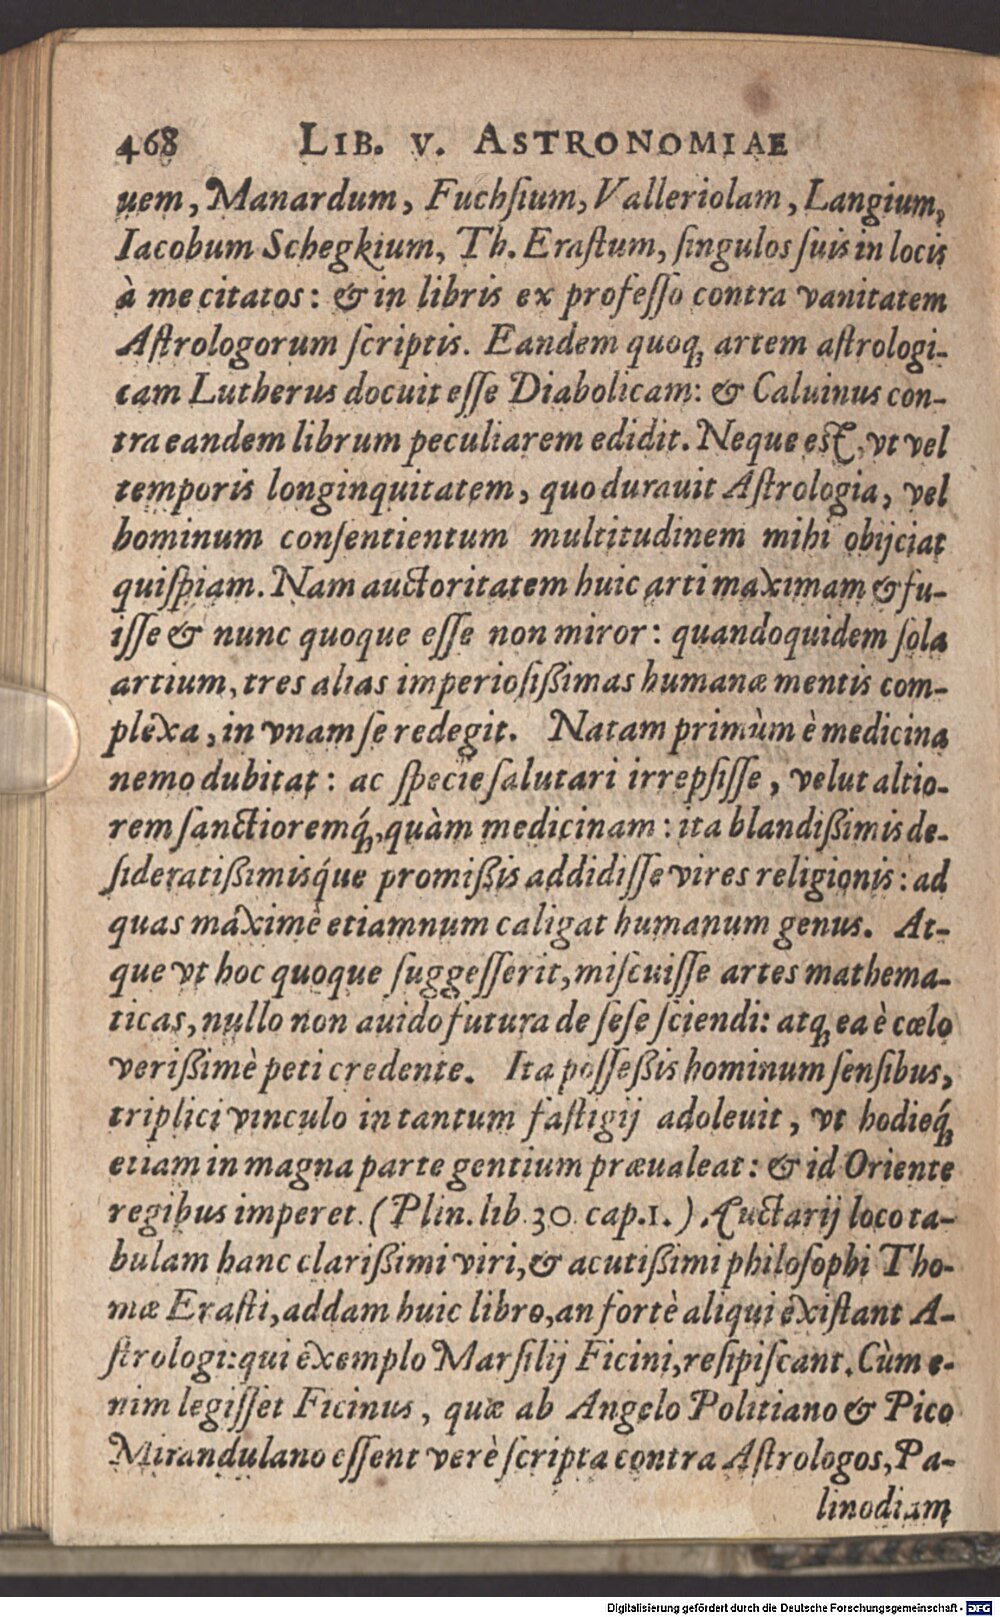 468 LIB. V. ASTRONOMIAE
uem, Manardum, Fuchſium, Valleriolam, Langium,
Iacobum Schegkium, Th. Eraſtum, ſingulos ſuis in locis
à me citatos: & in libris ex profeſſo contra vanitatem
Aſtrologorum ſcriptis. Eandem quoq; artem aſtrologi-
cam Lutherus docuit eſſe Diabolicam: & Caluinus con-
tra eandem librum peculiarem edidit. Neque eſt, vt vel
temporis longinquitatem, quo durauit Aſtrologia, vel
hominum conſentientum multitudinem mihi obijciat
quiſpiam. Nam auctoritatem huic arti maximam & fu-
iſſe & nunc quoque eſſe non miror: quandoquidem ſola
artium, tres alias imperioſißimas humanæ mentis com-
plexa, in vnam ſe redegit. Natam primùm è medicina
nemo dubitat: ac ſpecie ſalutari irrepſiſſe, velut altio-
rem ſanctioremq́;, quàm medicinam: ita blandißimis de-
ſideratißimisq́ue promißis addidiſſe vires religionis: ad
quas maximè etiamnum caligat humanum genus. At-
que vt hoc quoque ſuggeſſerit, miſcuiſſe artes mathema-
ticas, nullo non auido futura de ſeſe ſciendi: atq; ea è cœlo
verißimè peti credente. Ita poſſeßis hominum ſenſibus,
triplici vinculo in tantum faſtigij adoleuit, vt hodieq́;
etiam in magna parte gentium præualeat: & id Oriente
regibus imperet. (Plin. lib. 30. cap. 1.) Auctarij loco ta-
bulam hanc clarißimi viri, & acutißimi philoſophi Tho-
mæ Eraſti, addam huic libro, an fortè aliqui exiſtant A-
ſtrologi: qui exemplo Marſilij Ficini, reſipiſcant. Cùm e-
nim legiſſet Ficinus, quæ ab Angelo Politiano & Pico
Mirandulano eſſent verè ſcripta contra Aſtrologos, Pa-
linodiam
Digitalisierung gefördert durch die Deutsche Forschungsgemeinschaft - DFG